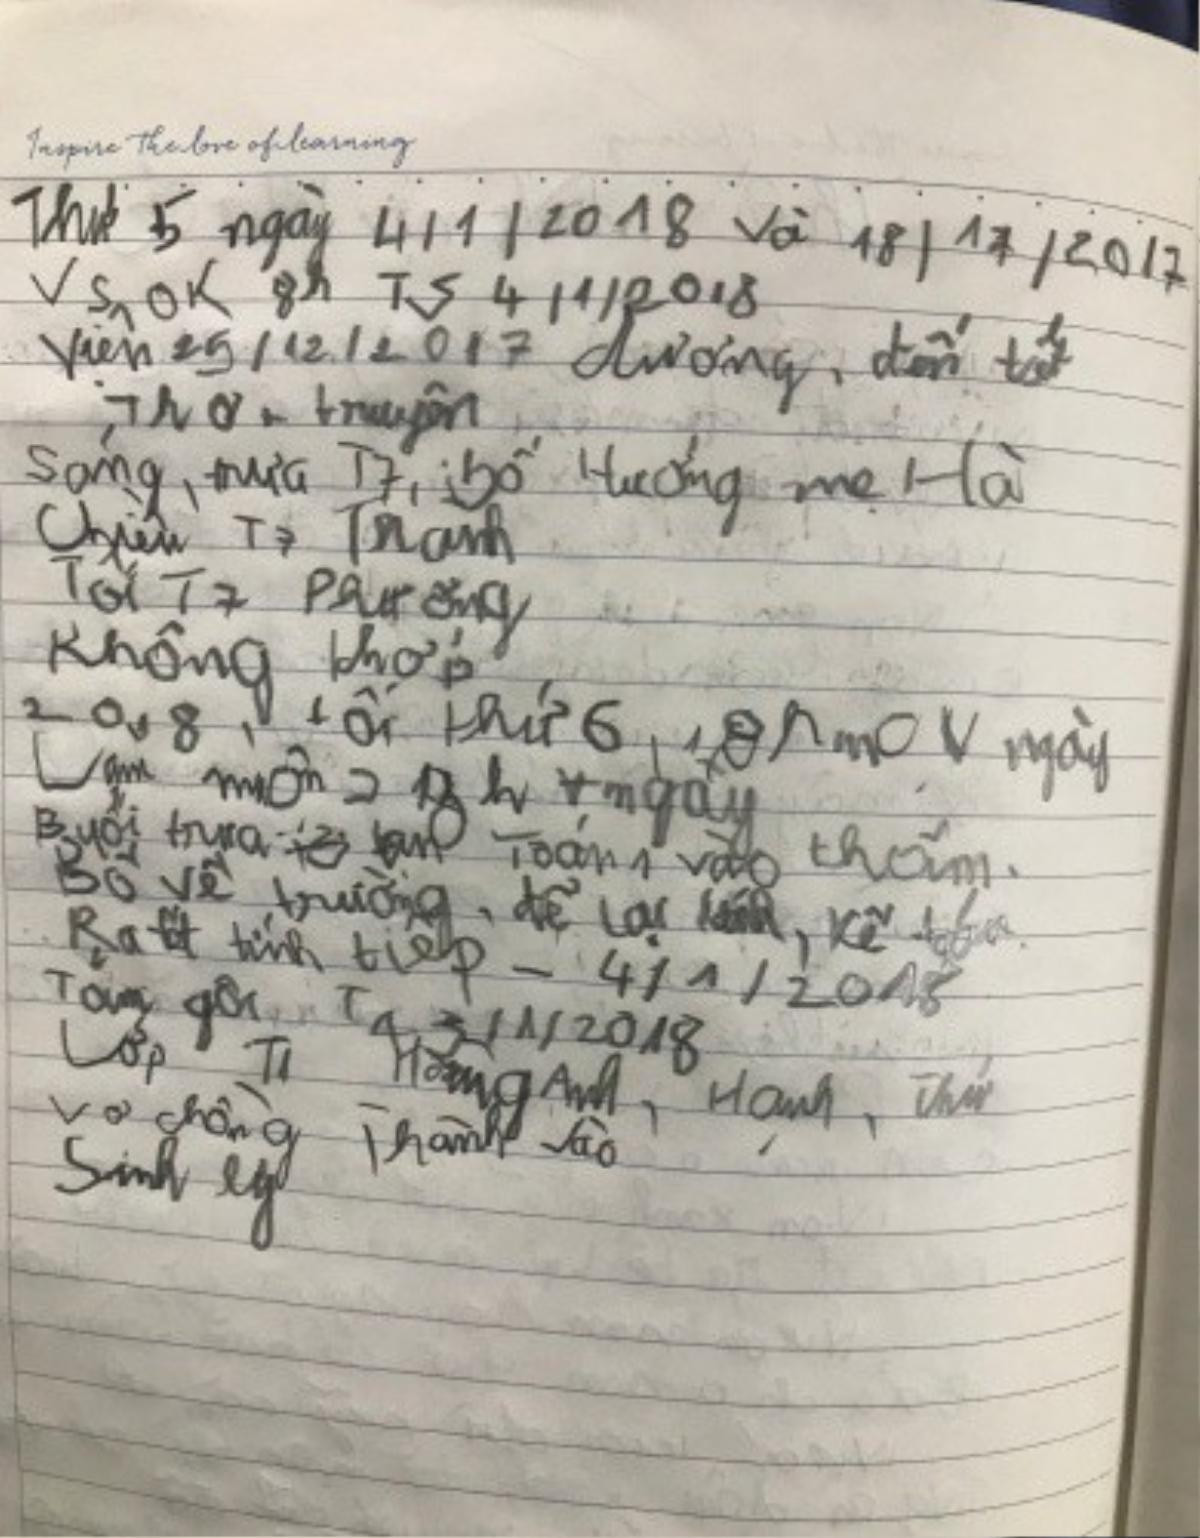 Inspire The love of learning
Thứ 5 ngày 4/1/2018 và 18/17/2017
VS, OK 8h T5 4/1/2018
Viện 25/12/2017 dương, đến tết
Thơ, truyện
Sáng, trưa T7, bố Hướng mẹ Hà
Chiều T7 Thanh
Tối T7 Phương
Không khớp
2018, tối thứ 6, ngày
Làm muộn 2 h ngày
Buổi trưa Toán 1 vào thăm.
Bố về trường, để lại kính, kẽ
Ra tết tính tiếp - 4/1/2018
Tắm gội, T4 3/1/2018
Lớp T1 Hoàng Anh, Hạnh, Thứ
Vợ chồng Thành vào
Sinh lý